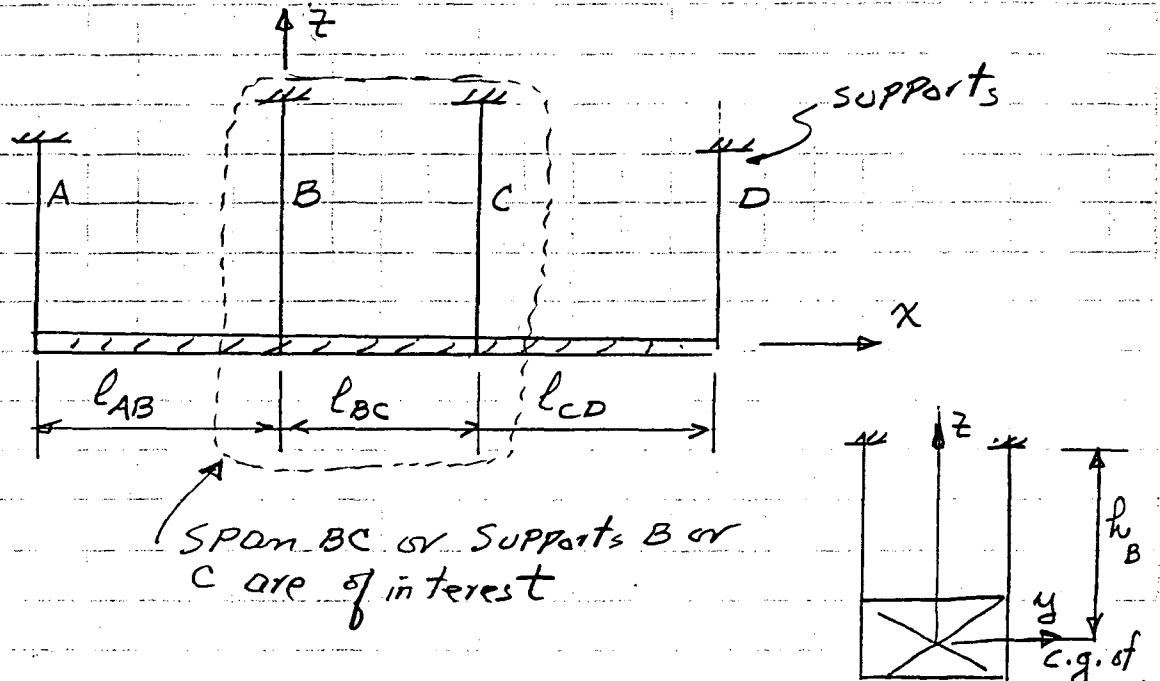 z
supports
A
B
C
D
x
l_AB
l_BC
l_CD
z
h_B
Span BC or Supports B or
C are of interest
y
c.g. of